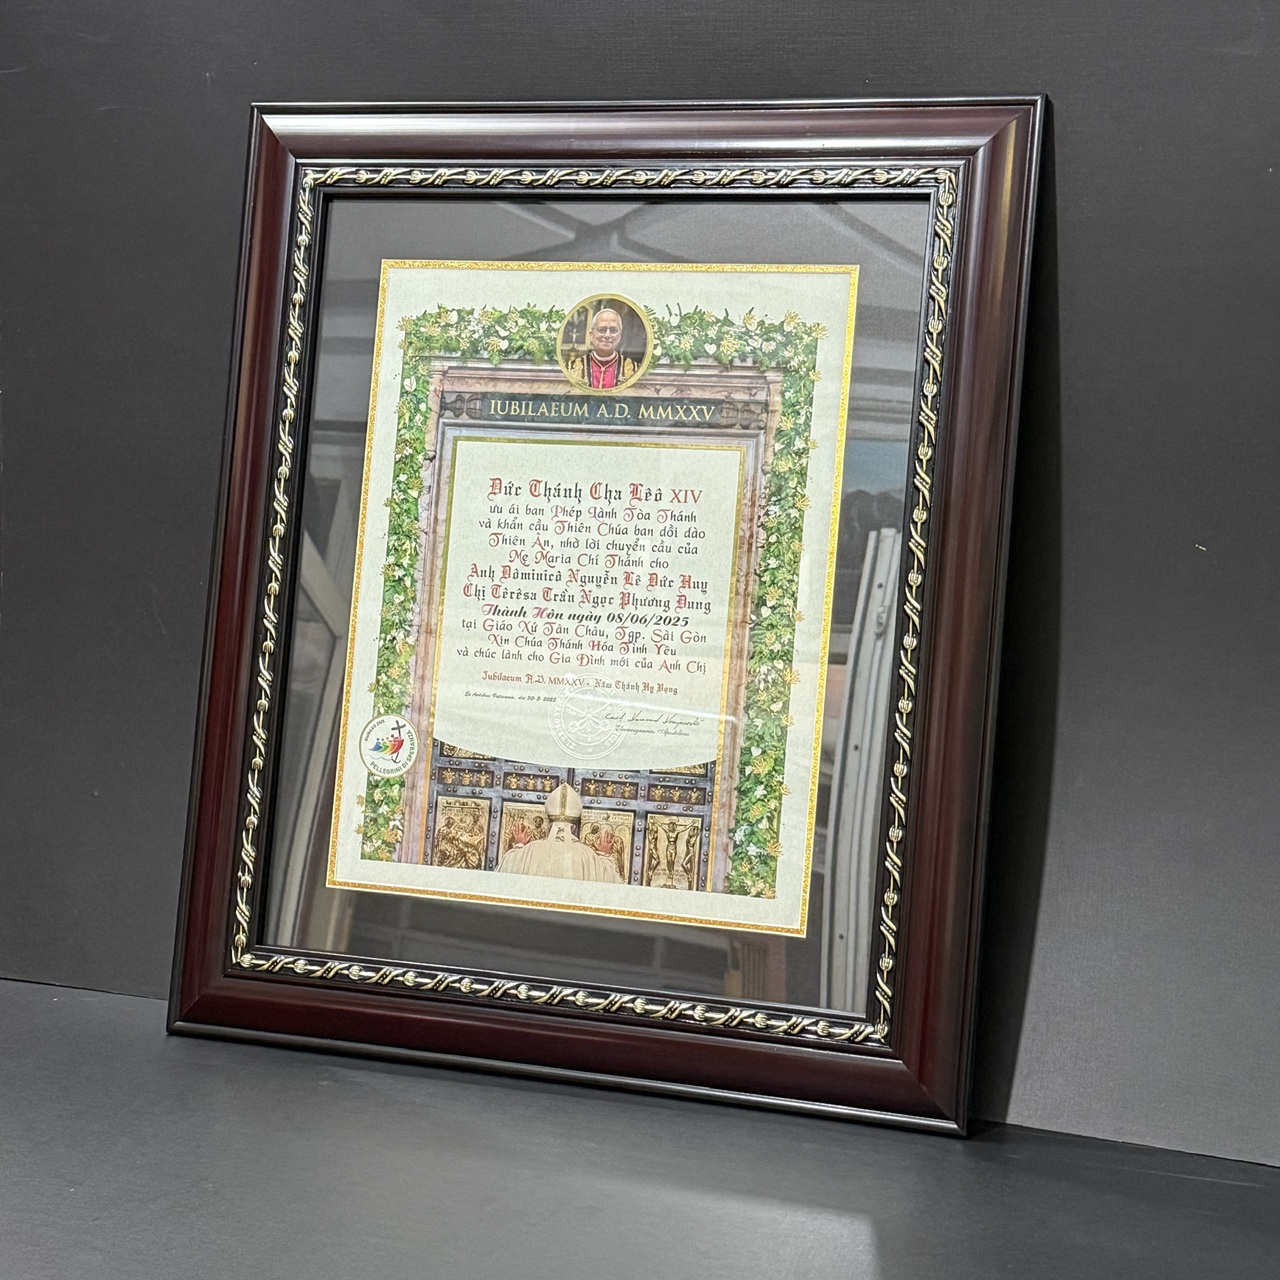 IUBILAEUM A.D. MMXXV
Đức Thánh Cha Lêô XIV
ưu ái ban Phép Lành Tòa Thánh
và khẩn cầu Thiên Chúa ban dồi dào
Thiên Ân, nhờ lời chuyển cầu của
Mẹ Maria Chí Thánh cho
Anh Đôminicô Nguyễn Lê Đức Huy
Chị Têrêsa Trần Ngọc Phương Dung
Thành Hôn ngày 08/06/2025
tại Giáo Xứ Tân Châu, Tgp. Sài Gòn
Xin Chúa Thánh Hóa Tình Yêu
và chúc lành cho Gia Đình mới của Anh Chị
Iubilaeum A.D. MMXXV - Năm Thánh Hy Vọng
Ex Aedibus Vaticanis, die
PELLEGRINI DI SPERANZA